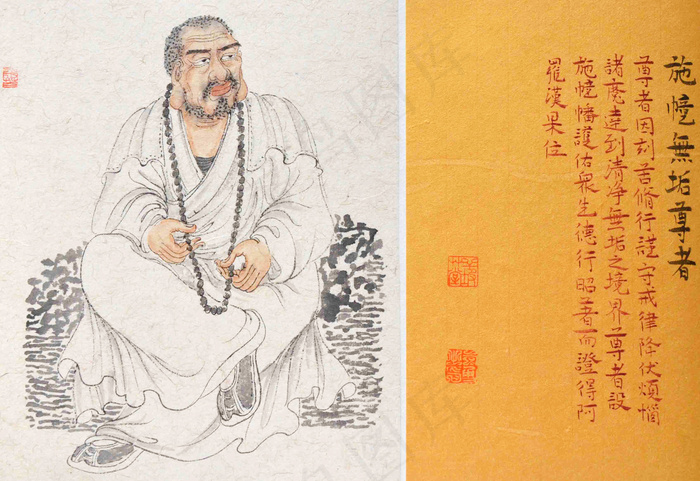 施幢無垢尊者
尊者因刻苦脩行謹守戒律降伏煩惱
諸魔達到清净無垢之境界尊者設
施幢幡護佑衆生德行昭著而證得阿
羅漢果位